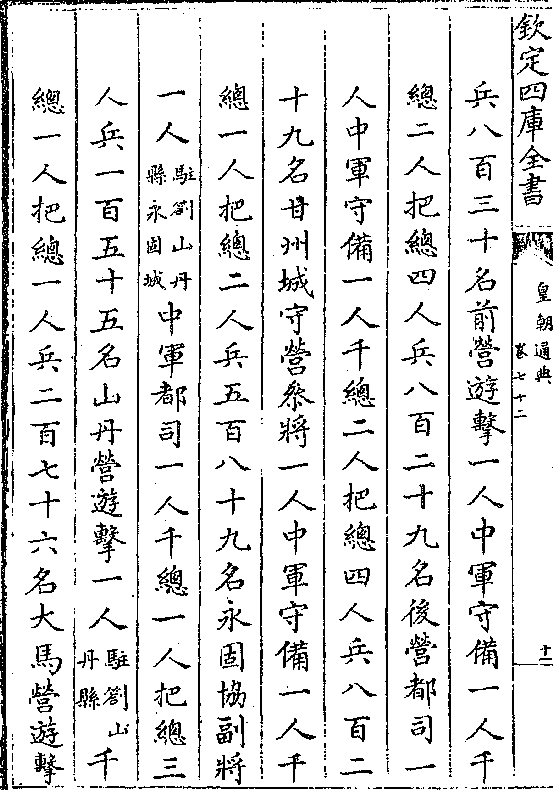 欽定四庫全書
皇朝通典
卷七十二
十二
兵八百三十名前營遊擊一人中軍守備一人千
總二人把總四人兵八百二十九名後營都司一
人中軍守備一人千總二人把總四人兵八百二
十九名甘州城守營叅將一人中軍守備一人千
總一人把總二人兵五百八十九名永固協副將
一人駐劄山丹縣永固城中軍都司一人千總一人把總三
人兵一百五十五名山丹營遊擊一人駐劄山丹縣千
總一人把總一人兵二百七十六名大馬營遊擊